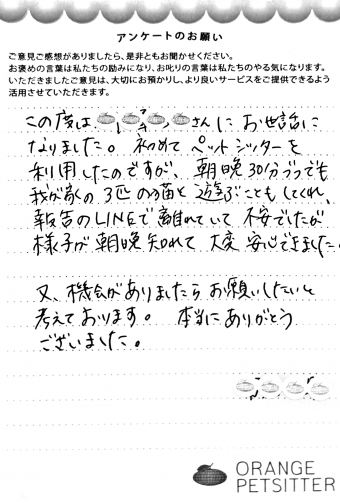 アンケートのお願い
ご意見ご感想がありましたら、是非ともお聞かせください。
お褒めの言葉は私たちの励みになり、お叱りの言葉は私たちのやる気になります。
いただきましたご意見は、大切にお預かりし、より良いサービスをご提供できるよう
活用させていただきます。
この度は さんに お世話に
なりました。初めて ペットシッターを
利用したのですが、朝晩30分づつでも
我が家の3匹の猫と遊ぶこともしてくれ、
報告のLINEで離れていて不安でしたが
様子が朝晩知れて大変安心できました。
又、機会がありましたらお願いしたいと
考えております。 本当にありがとう
ございました。
ORANGE
PETSITTER